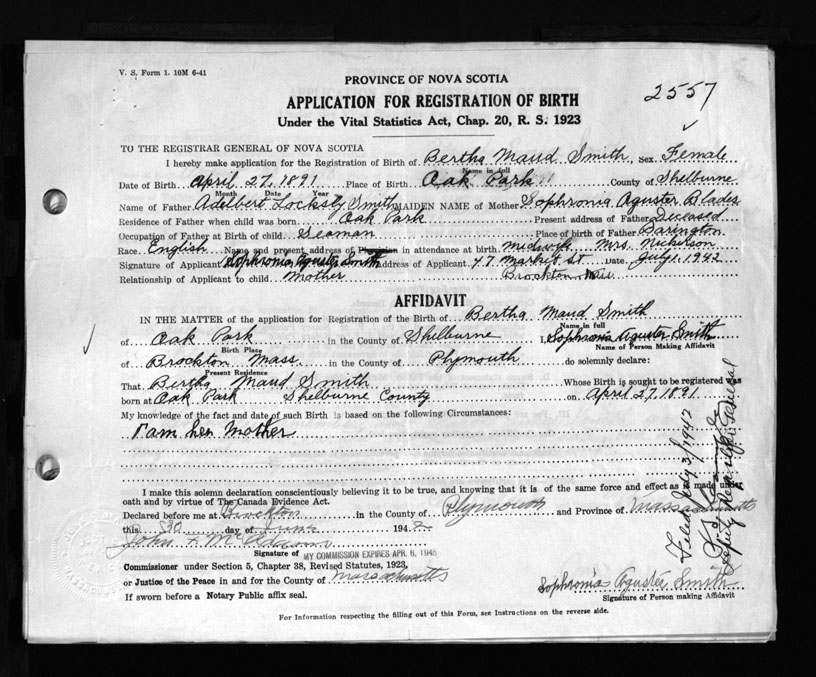 V. S. Form 1. 10M 6-41
PROVINCE OF NOVA SCOTIA
2557
APPLICATION FOR REGISTRATION OF BIRTH
Under the Vital Statistics Act, Chap. 20, R. S. 1923
TO THE REGISTRAR GENERAL OF NOVA SCOTIA
I hereby make application for the Registration of Birth of Bertha Maud Smith, Sex Female
Name in full
Date of Birth April 27, 1891 Place of Birth Oak Park County of Shelburne
Month Date Year
Name of Father Adelbert Locksly Smith MAIDEN NAME of Mother Sophronia Aguster Blades
Residence of Father when child was born Oak Park Present address of Father Deceased
Occupation of Father at Birth of child Seaman Place of birth of Father Barington
Race English Name and present address of Physician in attendance at birth midwife Mrs. Nickerson
Signature of Applicant Sophronia Aguster Smith Address of Applicant 47 Market St Date July 1, 1942
Relationship of Applicant to child Mother Brockton Mass
AFFIDAVIT
IN THE MATTER of the application for Registration of the Birth of Bertha Maud Smith
Name in full
of Oak Park in the County of Shelburne I, Sophronia Aguster Smith
Birth Place Name of Person Making Affidavit
of Brockton Mass in the County of Plymouth do solemnly declare:
Present Residence
That Bertha Maud Smith Whose Birth is sought to be registered was
born at Oak Park Shelburne County on April 27, 1891
My knowledge of the fact and date of such Birth is based on the following Circumstances:
I am her Mother
I make this solemn declaration conscientiously believing it to be true, and knowing that it is of the same force and effect as if made under
oath and by virtue of The Canada Evidence Act.
Declared before me at Brockton in the County of Plymouth and Province of Massachusetts
this 30 day of June 1942
John F. McAdams
Signature of
MY COMMISSION EXPIRES APR. 6, 1945
Commissioner under Section 5, Chapter 38, Revised Statutes, 1923,
or Justice of the Peace in and for the County of Massachusetts
Sophronia Aguster Smith
If sworn before a Notary Public affix seal.
Signature of Person making Affidavit
For Information respecting the filling out of this Form, see Instructions on the reverse side.
Filed July 3/1942
Deputy Registrar General